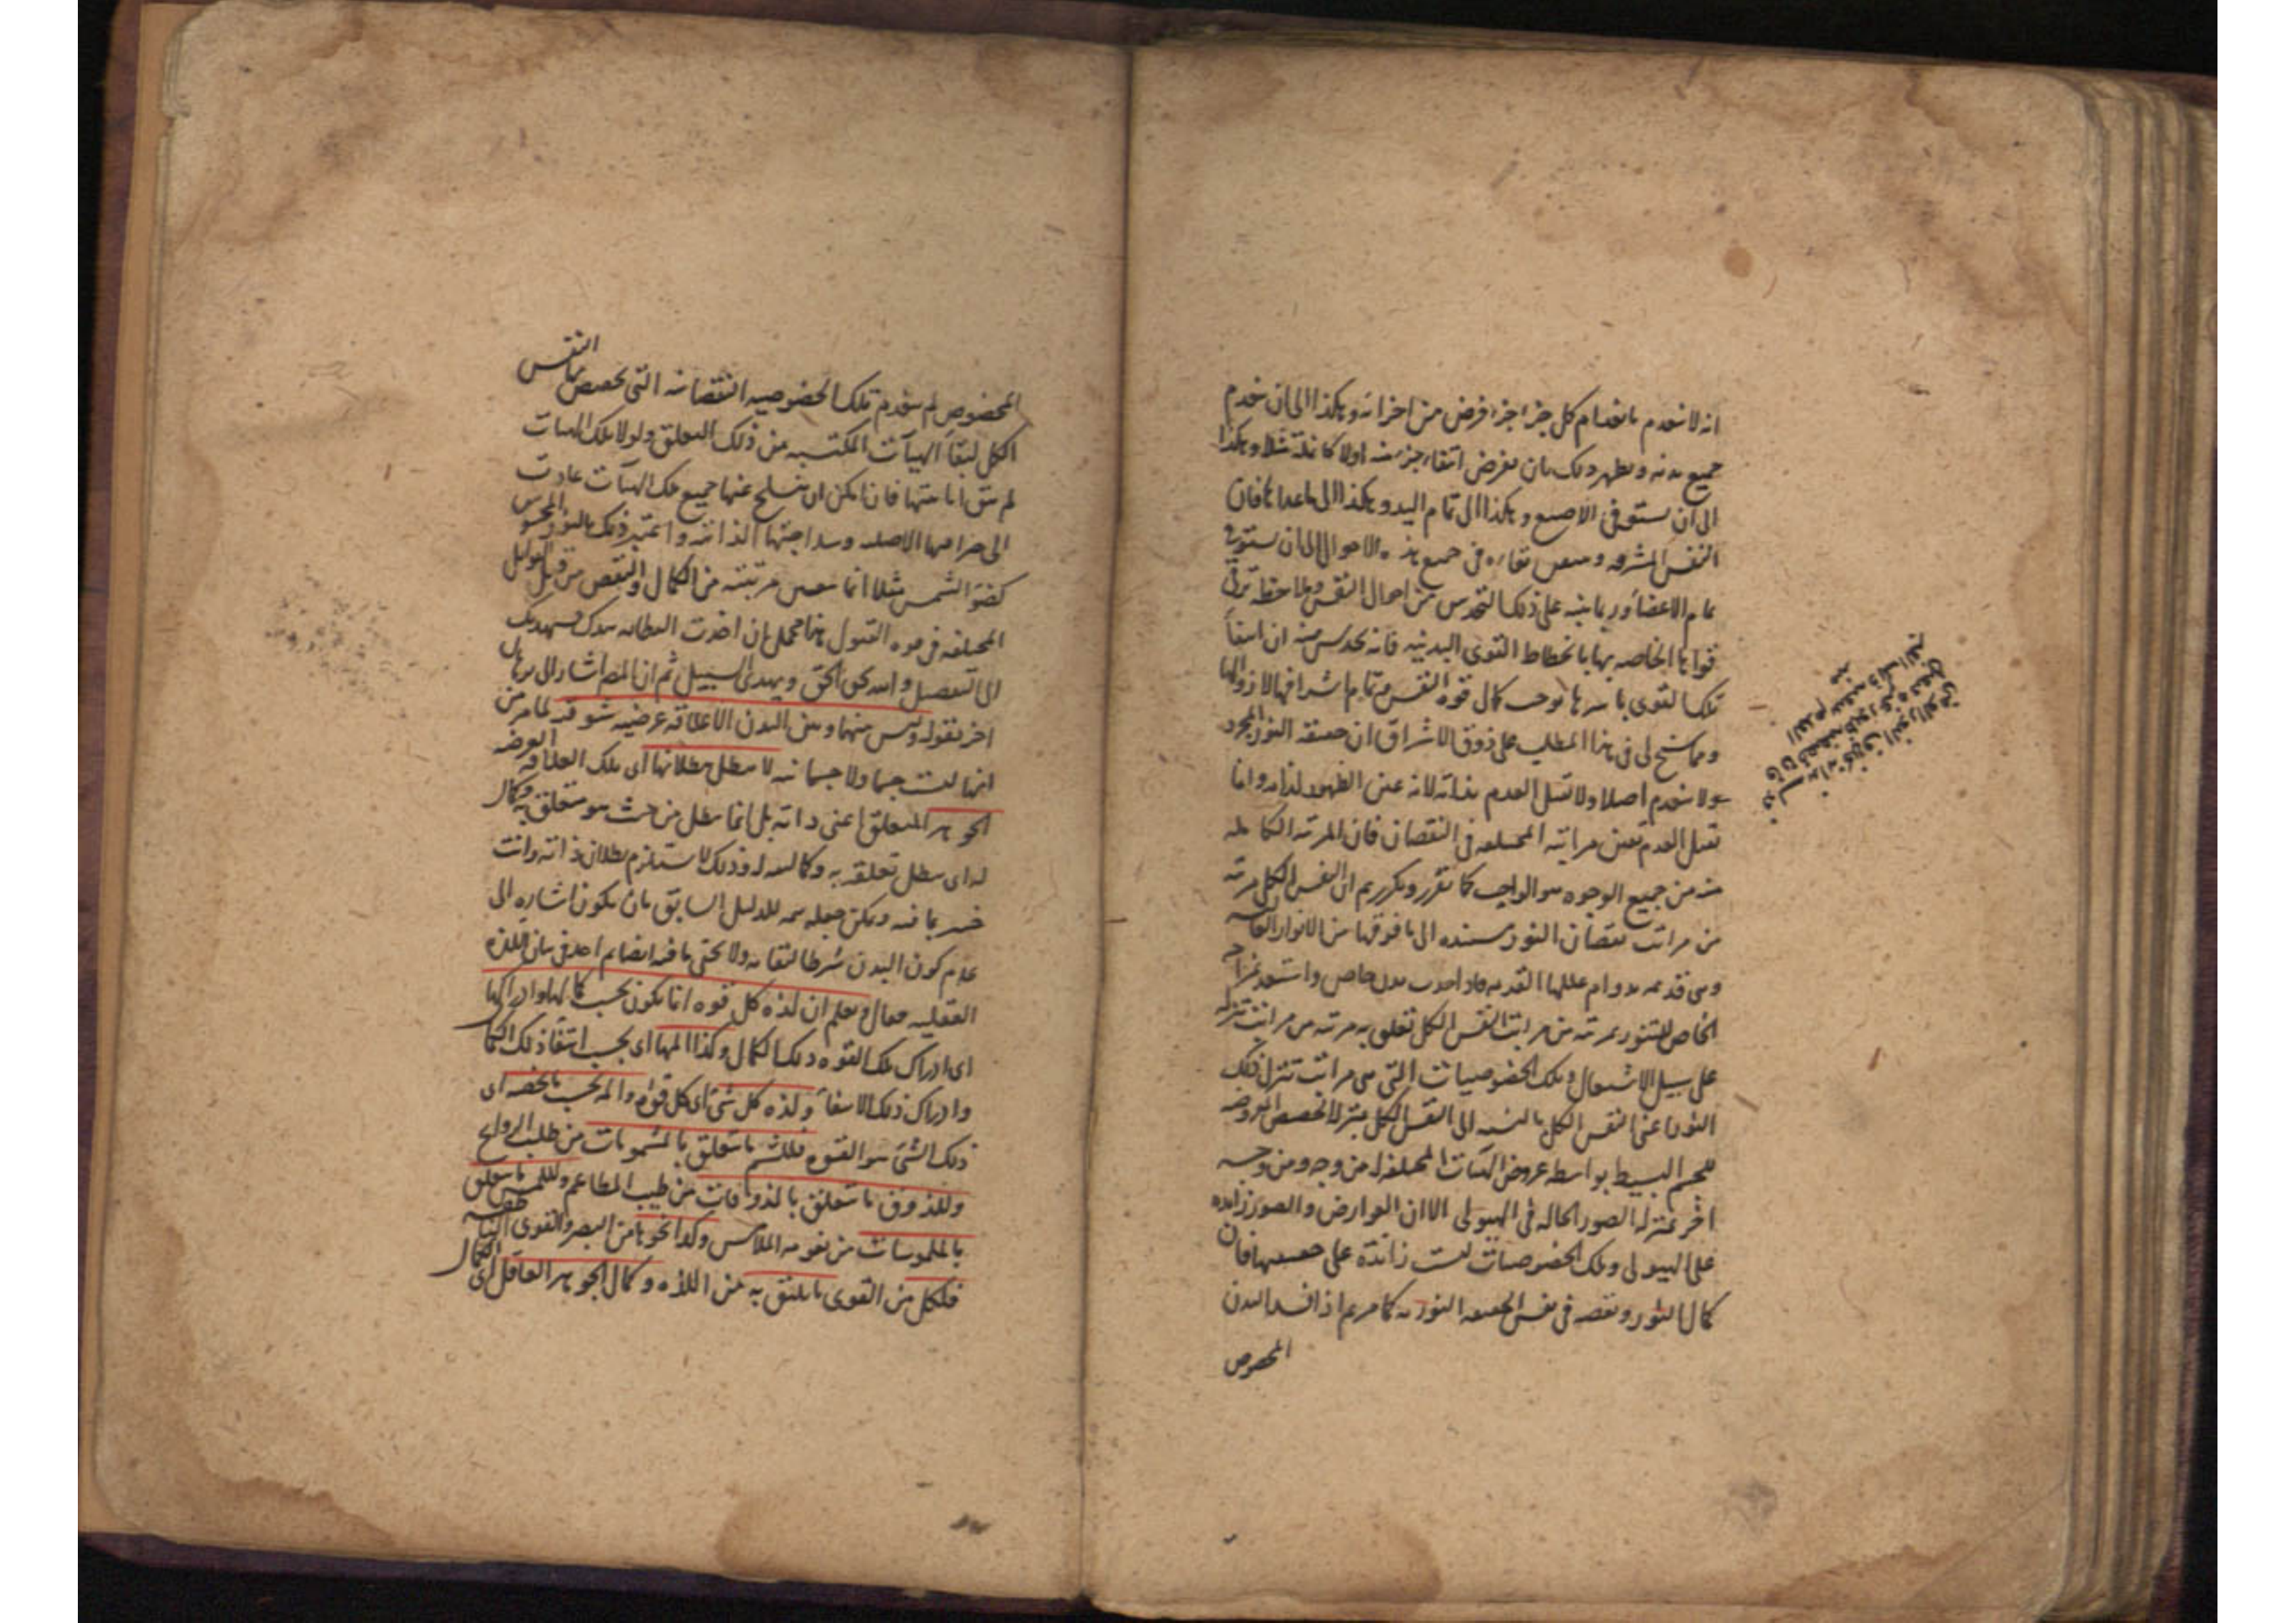 انه لا ينعدم بانعدام كل جزء جزء فرض من اجزائه وهكذا الى ان ينعدم
جميع بدنه ويظهر ذلك بان يفرض انتفاء جزء منه اولا كانملة مثلا وهكذا
الى ان يستوفى الاصبع وهكذا الى تمام اليد وهكذا الى ما عداها فان
النفس المشرقه بقاءه فى جميع هذه الاحوال الى ان يستوفى
تمام الاعضاء وربما ينبه على ذلك التحدس من احوال النفس وملاحظة ترقى
قواها الخاصه بها بانحطاط القوى البدنيه فانه يحدس منه ان انتفاء
تلك القوى باسرها يوجب كمال قوة النفس وتمام اشراقها لا زوالها
ومما سنح لى فى هذا المطلب على ذوق الاشراق ان حقيقة النور المجرد
لا ينعدم اصلا ولا تقبل العدم بذاته لانه عين الظهور لذاته وانما
تقبل العدم تعين مراتبه المختلفه فى النقصان فان المرتبه الكامله
منه من جميع الوجوه هو الواجب كما تقرر وتكرر ثم ان النفس الكل مرتبه
من مراتب نقصان النور مستنده الى ما فوقها من الانوار
وهى قديمه بدوام عللها القديمه فاذا حدث بدن خاص واستعد بمزاجه
الخاص للتنور بمرتبه من مراتب النفس الكل تعلق به مرتبه من مراتب تنزله
على سبيل الاشتعال وتلك الخصوصيات التى هى مراتب تنزل ذلك
النور اعنى النفس الكل بالنسبه الى النفس الكل بمنزلة الحصص المفروضه
للجسم البسيط بواسطه عروض الهيئات المختلفه له من وجه ومن وجه
اخر بمنزله الصور الحاله فى الهيولى الا ان العوارض والصور زائده
على الهيولى وتلك الخصوصيات ليست زائدة على حقيقتها فان
كمال النور ونقصه فى نفس الحقيقه النوريه كما مر ثم اذا فسد البدن
المخصوص
المخصوص لم ينعدم تلك الخصوصيه النقصانيه التى تخصص بها النفس
الكل لبقاء الهيآت المكتسبه من ذلك التعلق ولولا تلك الهيآت
لم تبق انانيتها فان امكن ان ينسلخ عنها جميع تلك الهيآت عادت
الى صرافتها الاصليه وسذاجتها الذاتيه واعتبر ذلك بالنور المحسوس
كضوء الشمس مثلا انما تتعين مرتبته من الكمال والنقص من قبل القوابل
المختلفه فى قوه القبول هذا مجمل ان اخذت الفطانه بيدك فسيهديك
الى تفصيل والله يحق الحق ويهدى السبيل ثم ان المص اشار الى برهان
اخر بقوله وليس بينها وبين البدن الا علاقه عرضيه شوقيه لما مر من
انها ليست جسما ولا جسمانيه لا يبطل ببطلانها اى تلك العلاقه العرضيه
الجوهر المتعلق اعنى ذاته بل انما يبطل من حيث هو متعلق به وكمال
له اى يبطل تعلقه به وكماليته له وذلك لا يستلزم بطلان ذاته وانت
خبير بما فيه ويمكن جعله تتمه للدليل السابق بان يكون اشاره الى
عدم كون البدن شرطا لبقائه ولا يخفى ما فيه ايضا ثم اخذ فى بيان اللذه
العقليه فقال وتعلم ان لذه كل قوه انما يكون بحسب كمالها وادراكها
اى ادراك تلك القوه ذلك الكمال وكذا المها اى بحسب انتفاء ذلك الكمال
وادراك ذلك الانتفاء ولذه كل شئ اى كل قوه والمه بحسب ما يخصه اى
ذلك الشئ هو القوه فللشم ما يتعلق بالمشمومات من طيب الروائح
وللذوق ما يتعلق بالمذوقات من طيب المطاعم وللمس ما يتعلق
بالملموسات من نعومه الملامس وكذا نحوها من البصر والقوى الباطنه
فلكل من القوى ما يليق به من اللذه وكمال الجوهر العاقل اى الكمال